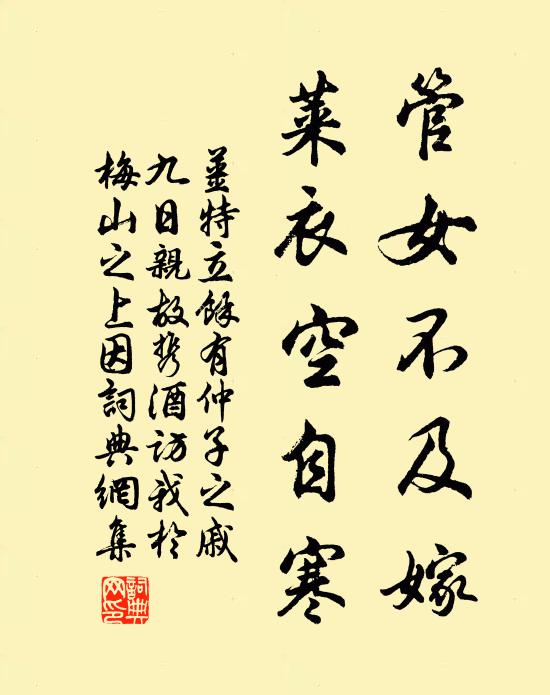 管女不及嫁
萊衣空自寒
姜特立餘有仲子之戚
九日親故携酒訪我於
梅山之上因詞典網集
詞典網印